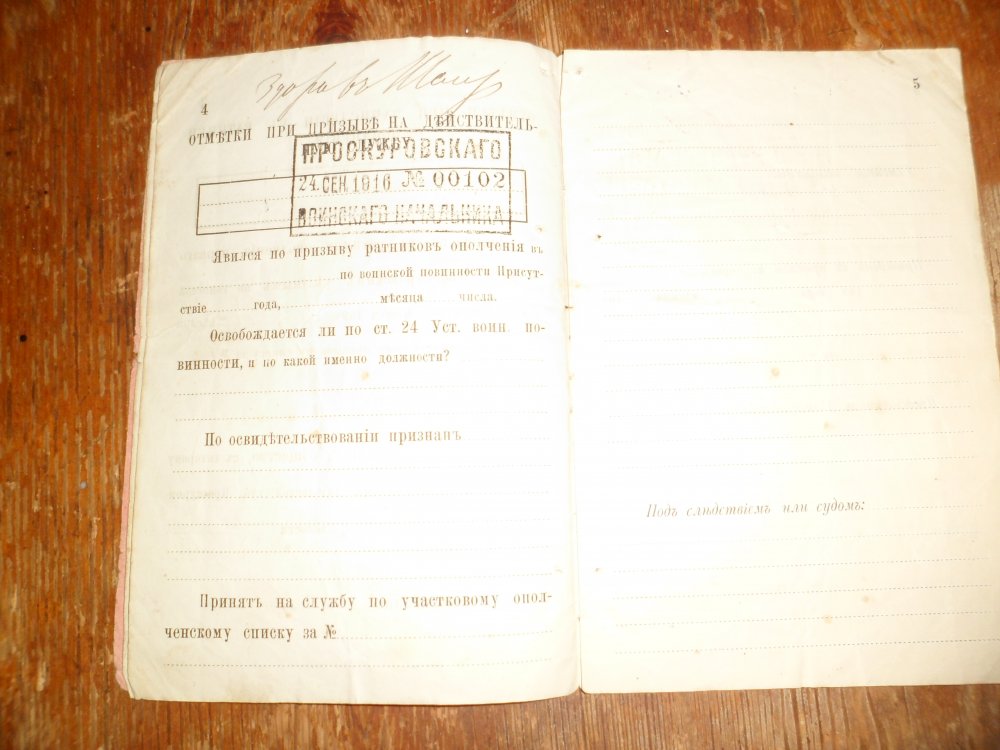 Здоровъ
4
ОТМѢТКИ ПРИ ПРИЗЫВѢ НА ДѢЙСТВИТЕЛЬ-
НУЮ СЛУЖБУ
ПРОСКУРОВСКАГО
24. СЕН. 1916 № 00102
ВОИНСКАГО НАЧАЛЬНИКА
Явился по призыву ратниковъ ополченія въ
по воинской повинности Присут-
ствіе года, мѣсяца числа.
Освобождается ли по ст. 24 Уст. воин. по-
винности, и по какой именно должности?
По освидѣтельствованіи признанъ
Принятъ на службу по участковому опол-
ченскому списку за №
5
Подъ слѣдствіемъ или судомъ: